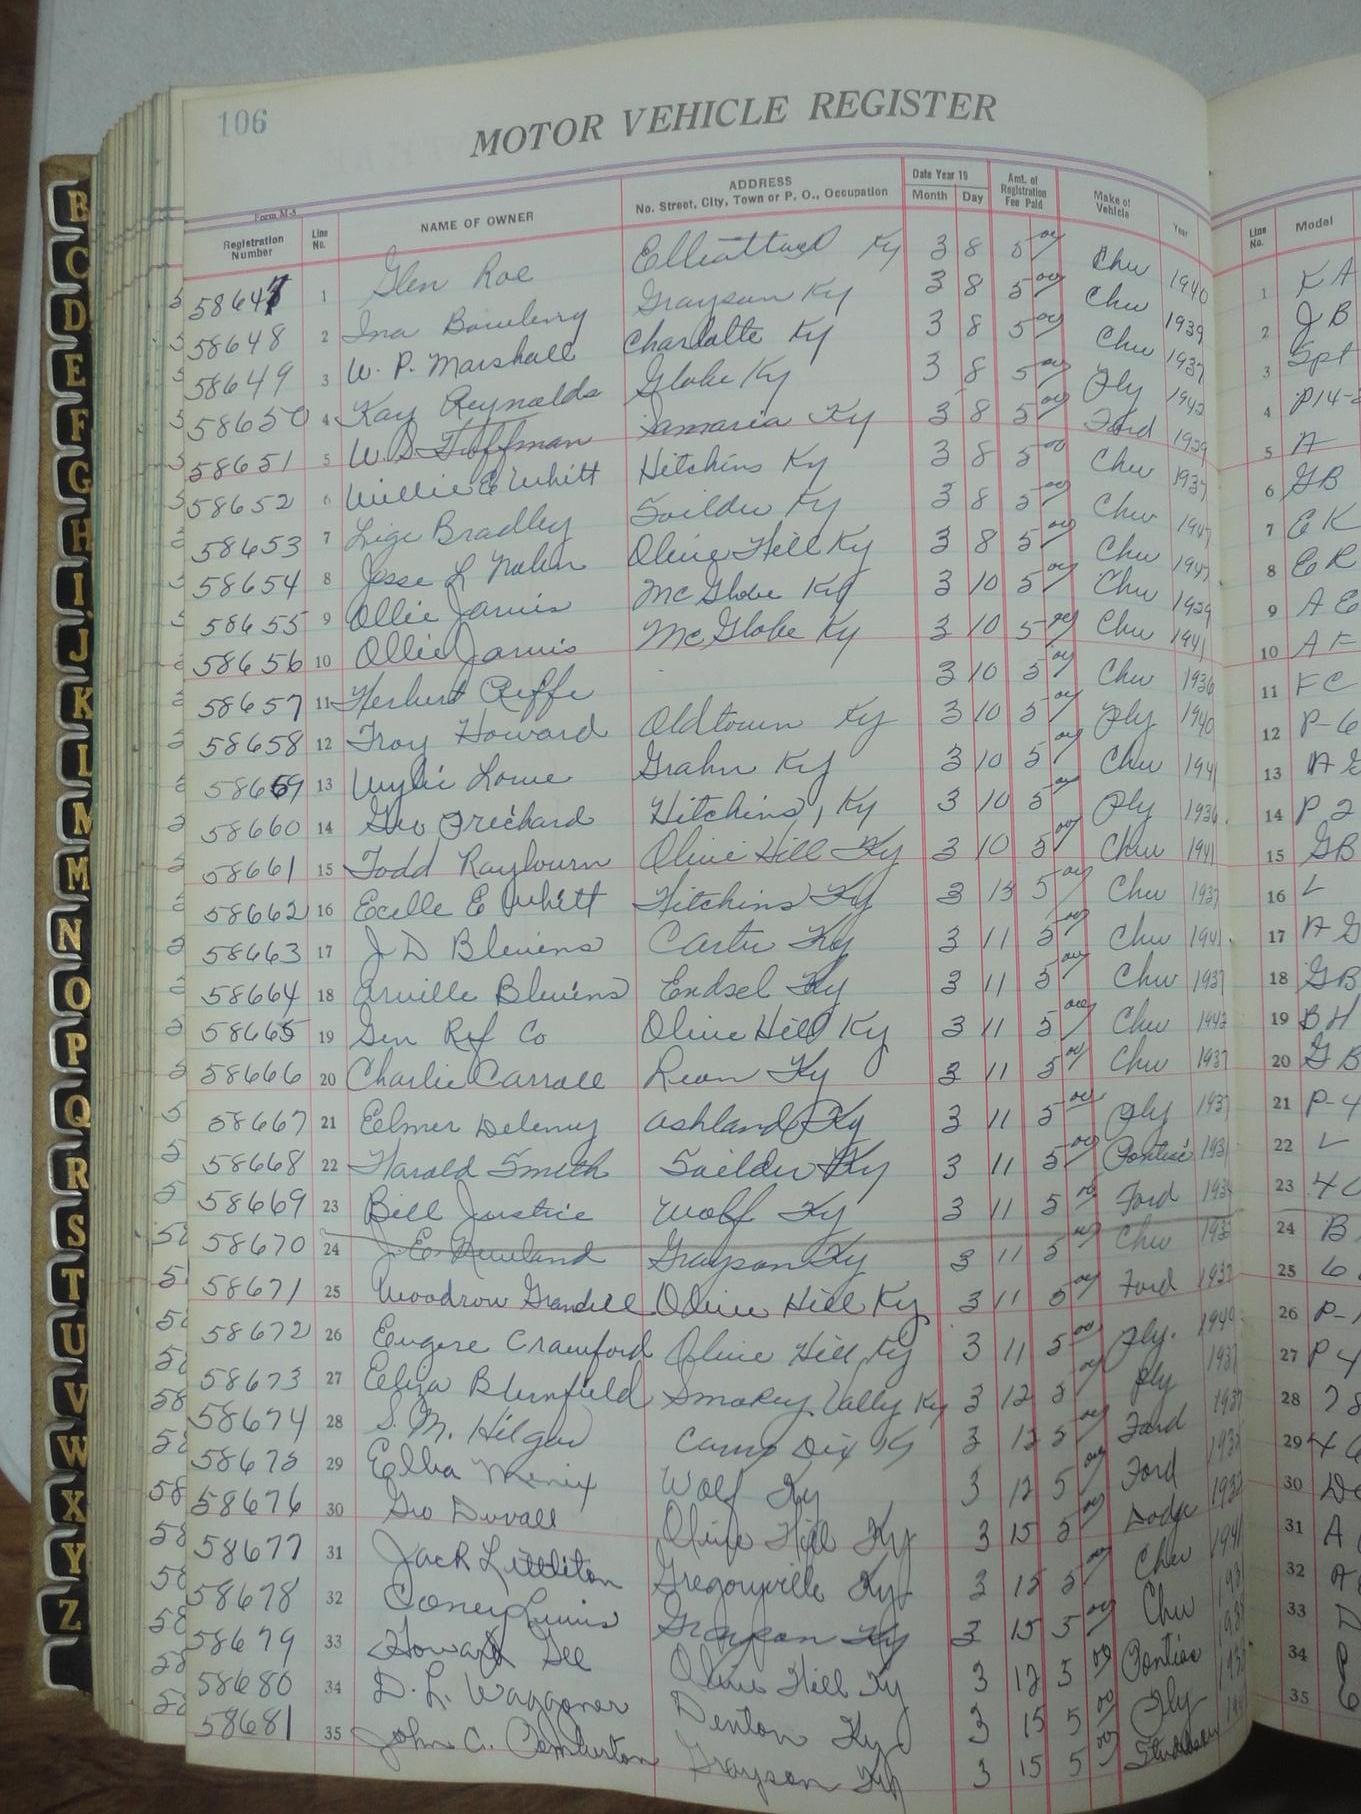 106
MOTOR VEHICLE REGISTER
Form M-5
Registration Number Line No. NAME OF OWNER ADDRESS No. Street, City, Town or P. O., Occupation Date Year 19 Month Day Amt. of Registration Fee Paid Make of Vehicle Year Line No. Model
58647 1 Glen Roe Ky 3 8 5 00 Chev 1940 1 K A
58648 2 Ina Grayson Ky 3 8 5 00 Chev 1939 2 J B
58649 3 W. P. Marshall Charlotte Ky 3 8 5 00 Chev 1937 3 Spt
58650 4 Kay Reynolds Globe Ky 3 8 5 00 Ply 1942 4 P14-
58651 5 W S Huffman Samaria Ky 3 8 5 00 Ford 1929 5 A
58652 6 Willie E Whitt Hitchins Ky 3 8 5 00 Chev 1937 6 GB
58653 7 Lige Bradley Soilder Ky 3 8 5 00 Chev 1947 7 E K
58654 8 Jesse L Nolen Olive Hill Ky 3 8 5 00 Chev 1947 8 E R
58655 9 Ollie Jarvis McGlobe Ky 3 10 5 00 Chev 1929 9 A E
58656 10 Ollie Jarvis McGlobe Ky 3 10 5 00 Chev 1941 10 A F
58657 11 Herbert Riffe 3 10 5 00 Chev 1936 11 F C
58658 12 Troy Howard Oldtown Ky 3 10 5 00 Ply 1940 12 P-6
58659 13 Wylie Lowe Grahn Ky 3 10 5 00 Chev 1941 13 A G
58660 14 Geo Prichard Hitchins, Ky 3 10 5 00 Ply 1936 14 P 2
58661 15 Todd Raybourn Olive Hill Ky 3 10 5 00 Chev 1941 15 GB
58662 16 Ecelle E Whitt Hitchins Ky 3 13 5 00 Chev 1937 16 L
58663 17 J D Blevins Carter Ky 3 11 5 00 Chev 1941 17 A G
58664 18 Arville Blevins Endsel Ky 3 11 5 00 Chev 1937 18 GB
58665 19 Gen Ref Co Olive Hill Ky 3 11 5 00 Chev 1942 19 B H
58666 20 Charlie Carroll Ky 3 11 5 00 Chev 1937 20 G B
58667 21 Elmer Deleny Ashland Ky 3 11 5 00 Ply 1937 21 P-4
58668 22 Harold Smith Soilder Ky 3 11 5 00 Pontiac 1931 22 L
58669 23 Bill Justice Wolf Ky 3 11 5 00 Ford 23 40
58670 24 J. E. Newland Grayson Ky 3 11 5 00 Chev 24 B
58671 25 Woodrow Grandell Olive Hill Ky 3 11 5 00 Ford 1937 25 6
58672 26 Eugene Crawford Olive Hill Ky 3 11 5 00 Ply. 1940 26 P-
58673 27 Eliza Blumfield Smokey Vally Ky 3 12 5 00 Ply 1937 27 P 4
58674 28 S. M. Hilgar Camp Dix Ky 3 12 5 00 Ford 1937 28 78
58675 29 Elba Menix Wolf Ky 3 12 5 00 Ford 29
58676 30 Geo Duvall Olive Hill Ky 3 15 5 00 Dodge 30 D
58677 31 Jack Littleton Gregoryville Ky 3 12 5 00 Chev 1941 31 A
58678 32 Coney Lewis Grayson Ky 3 15 5 00 Chev 32 A
58679 33 Howard Gee Olive Hill Ky 3 12 5 00 Pontiac 33 D
58680 34 D. L. Waggoner Denton Ky 3 15 5 00 Ply 34 P
58681 35 John C. Grayson Ky 3 15 5 00 35
B
C
D
E
F
G
H
I
J
K
L
M
M
N
O
P
Q
R
S
T
U
V
W
X
Y
Z